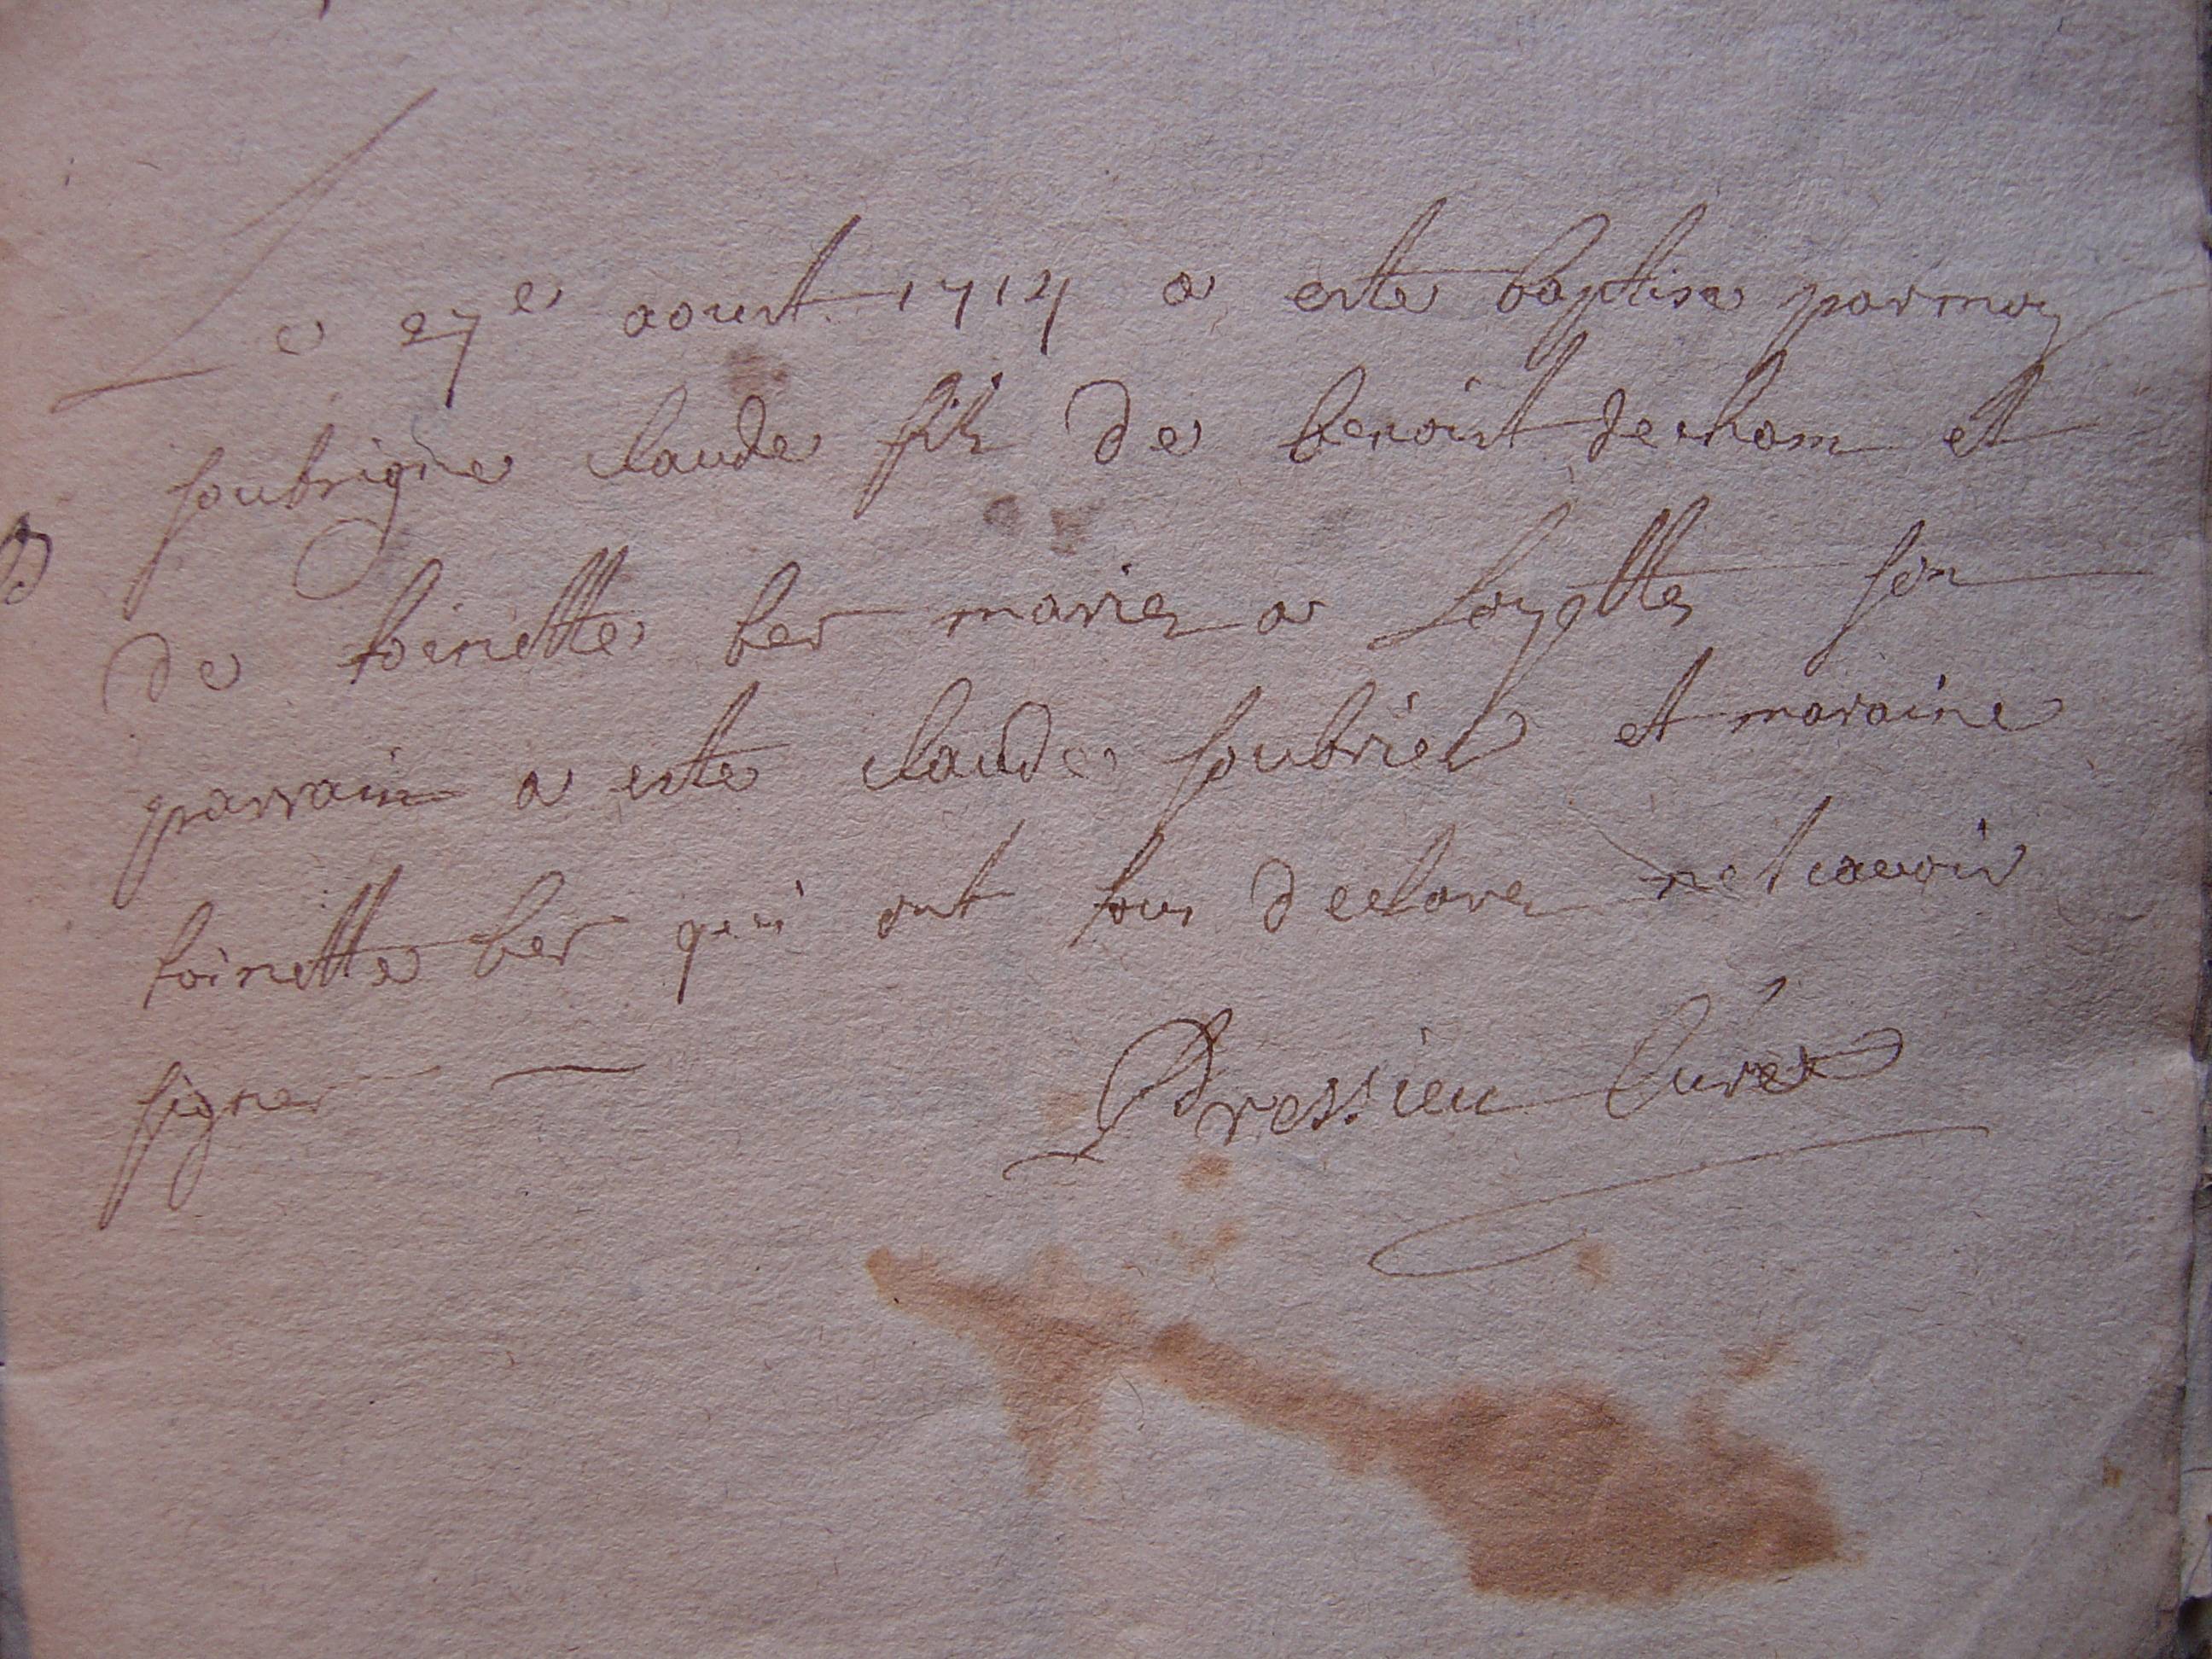 Le 27e aoust 1714 a este baptise par moy
soubsigne claude fils de benoist decham et
de toinette ber maries a Loyette son
parrain a este claude soubrier et maraine
toinette ber qui ont tous declares ne scavoir
signer
Dressieu Curé